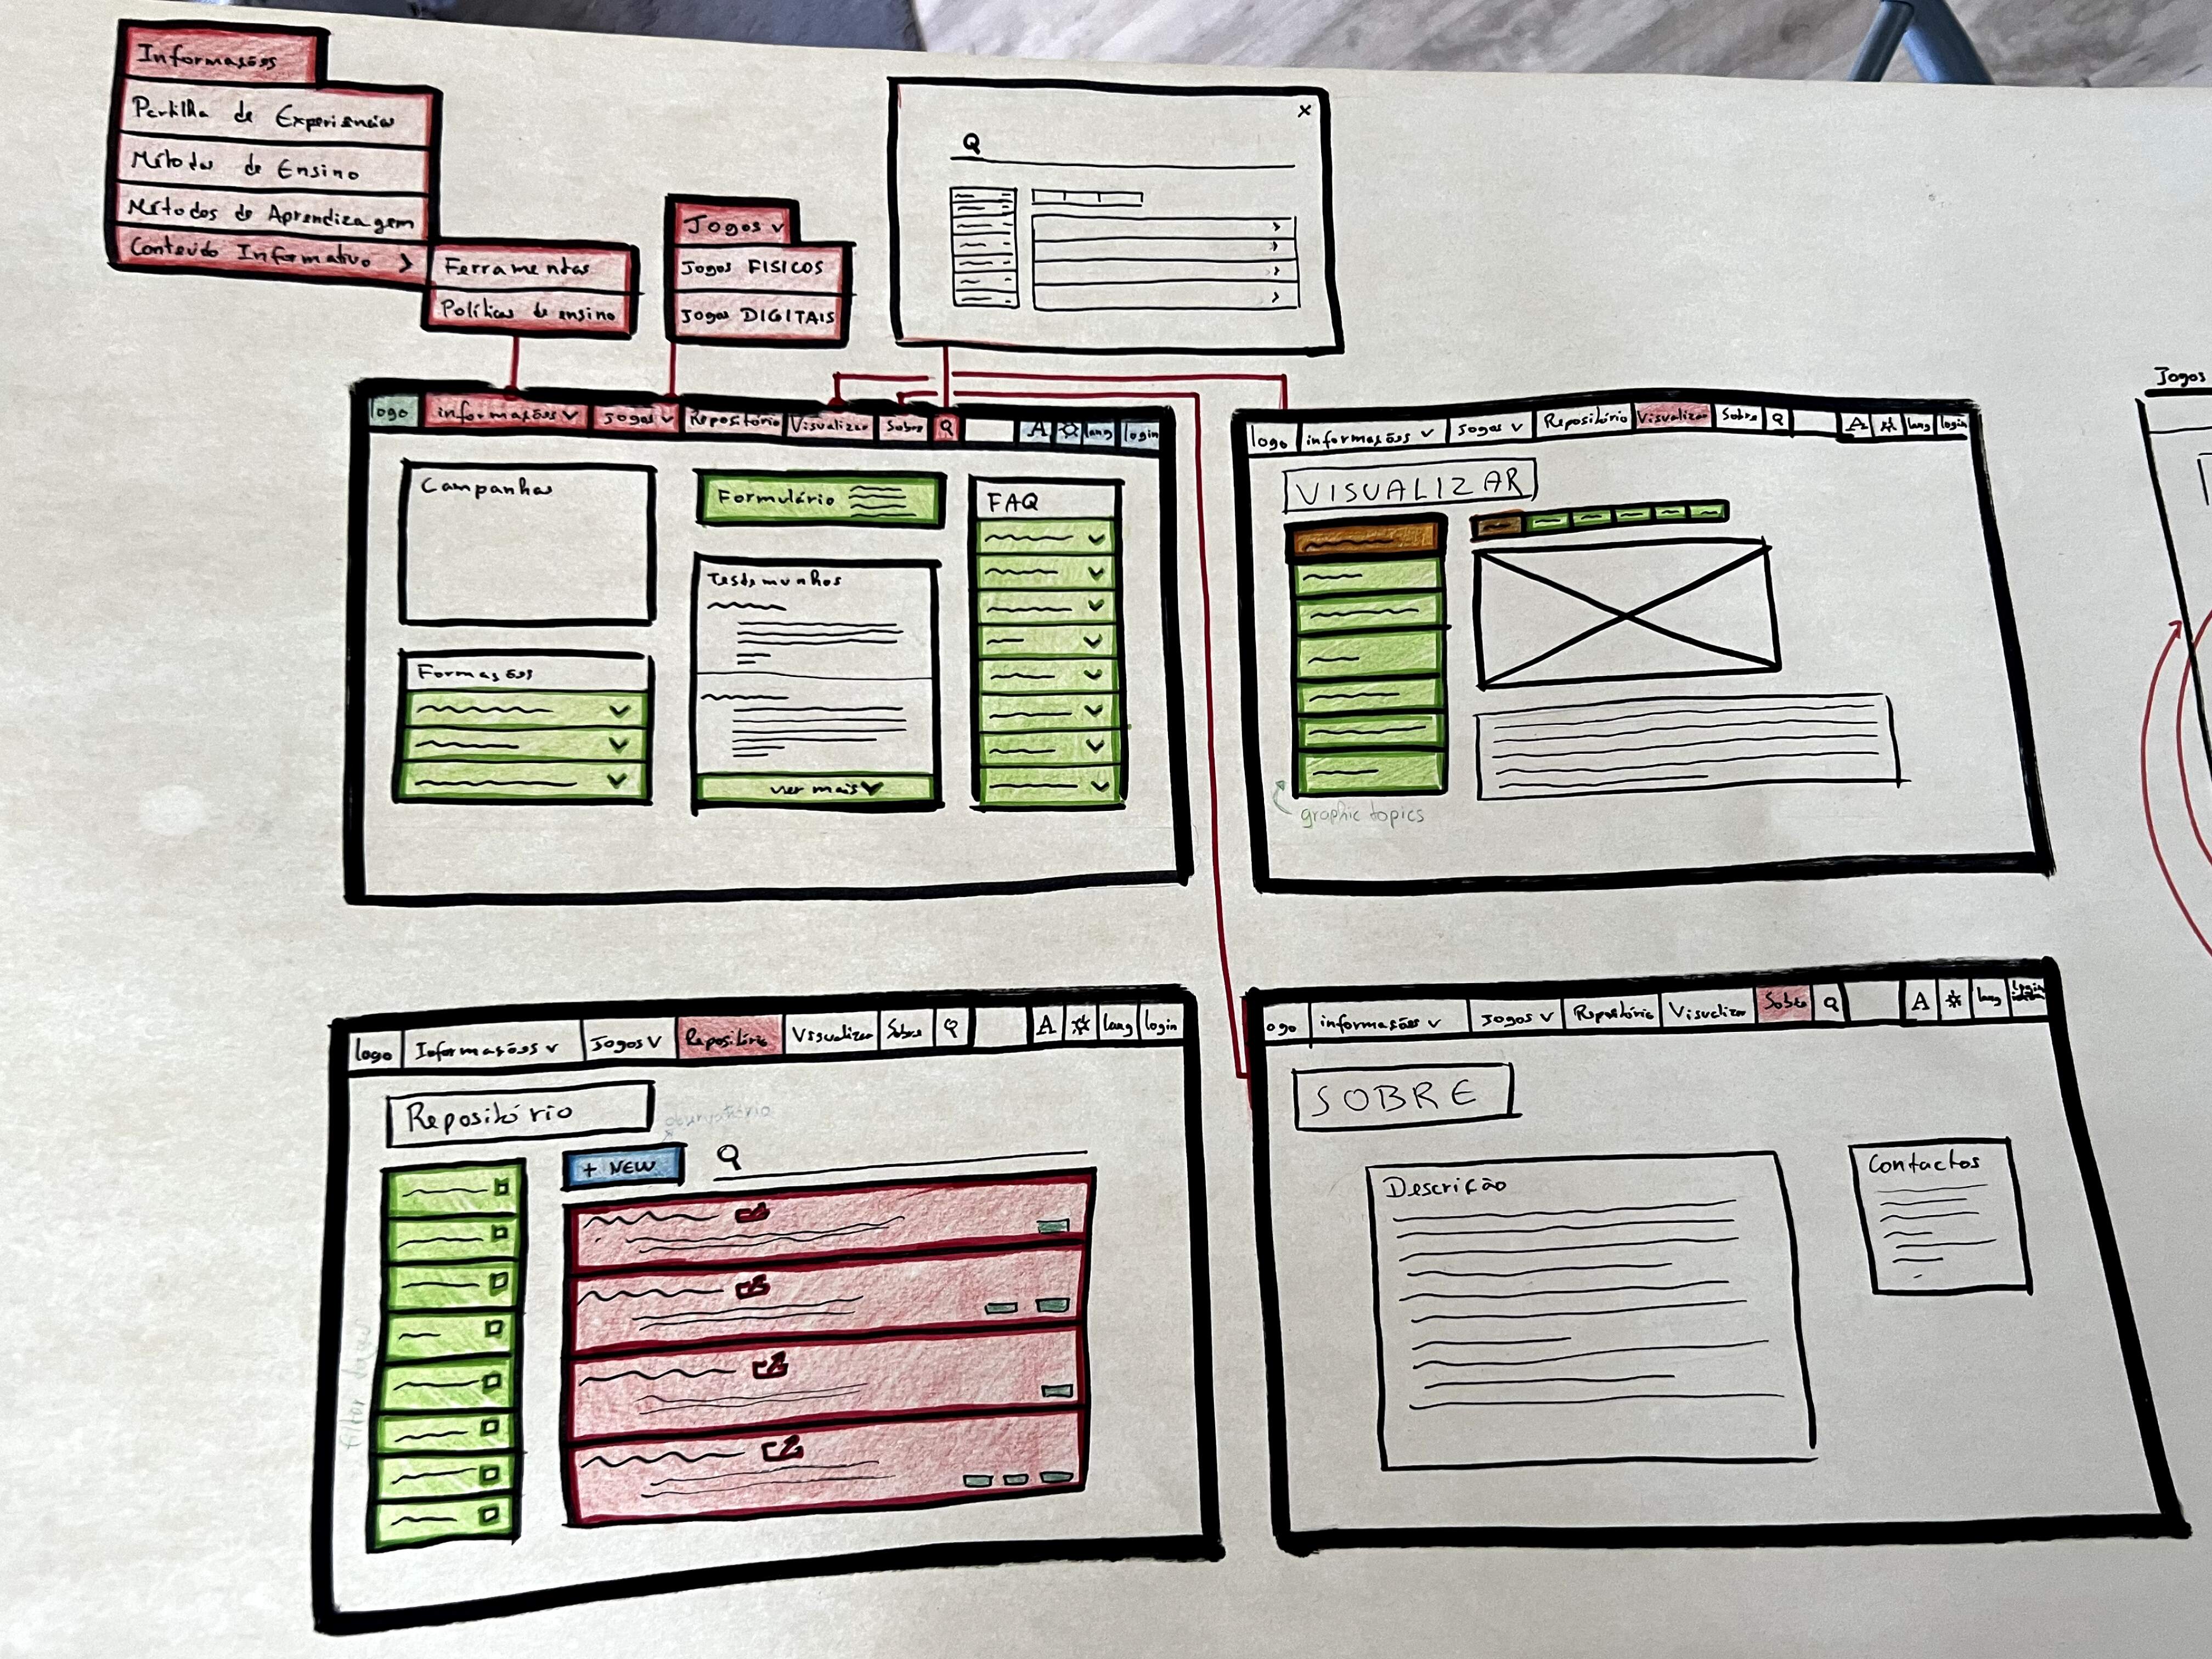 Informações
Partilha de Experiências
Métodos de Ensino
Métodos de Aprendizagem
Conteúdo Informativo >
Ferramentas
Políticas de ensino
Jogos v
Jogos FISICOS
Jogos DIGITAIS
x
logo informações v Jogos v Repositório Visualizar Sobre A lang login
Campanhas
Formações
Formulário
Testemunhos
ver mais v
FAQ
logo informações v Jogos v Repositório Visualizar Sobre A lang login
VISUALIZAR
graphic topics
Jogos
logo Informações v Jogos v Repositório Visualizar Sobre A lang login
Repositório
+ NEW
ogo informações v Jogos v Repositório Visualizar Sobre A lang
SOBRE
Descrição
Contactos